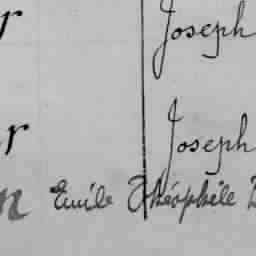 r Joseph
r Joseph
n Emile Théophile